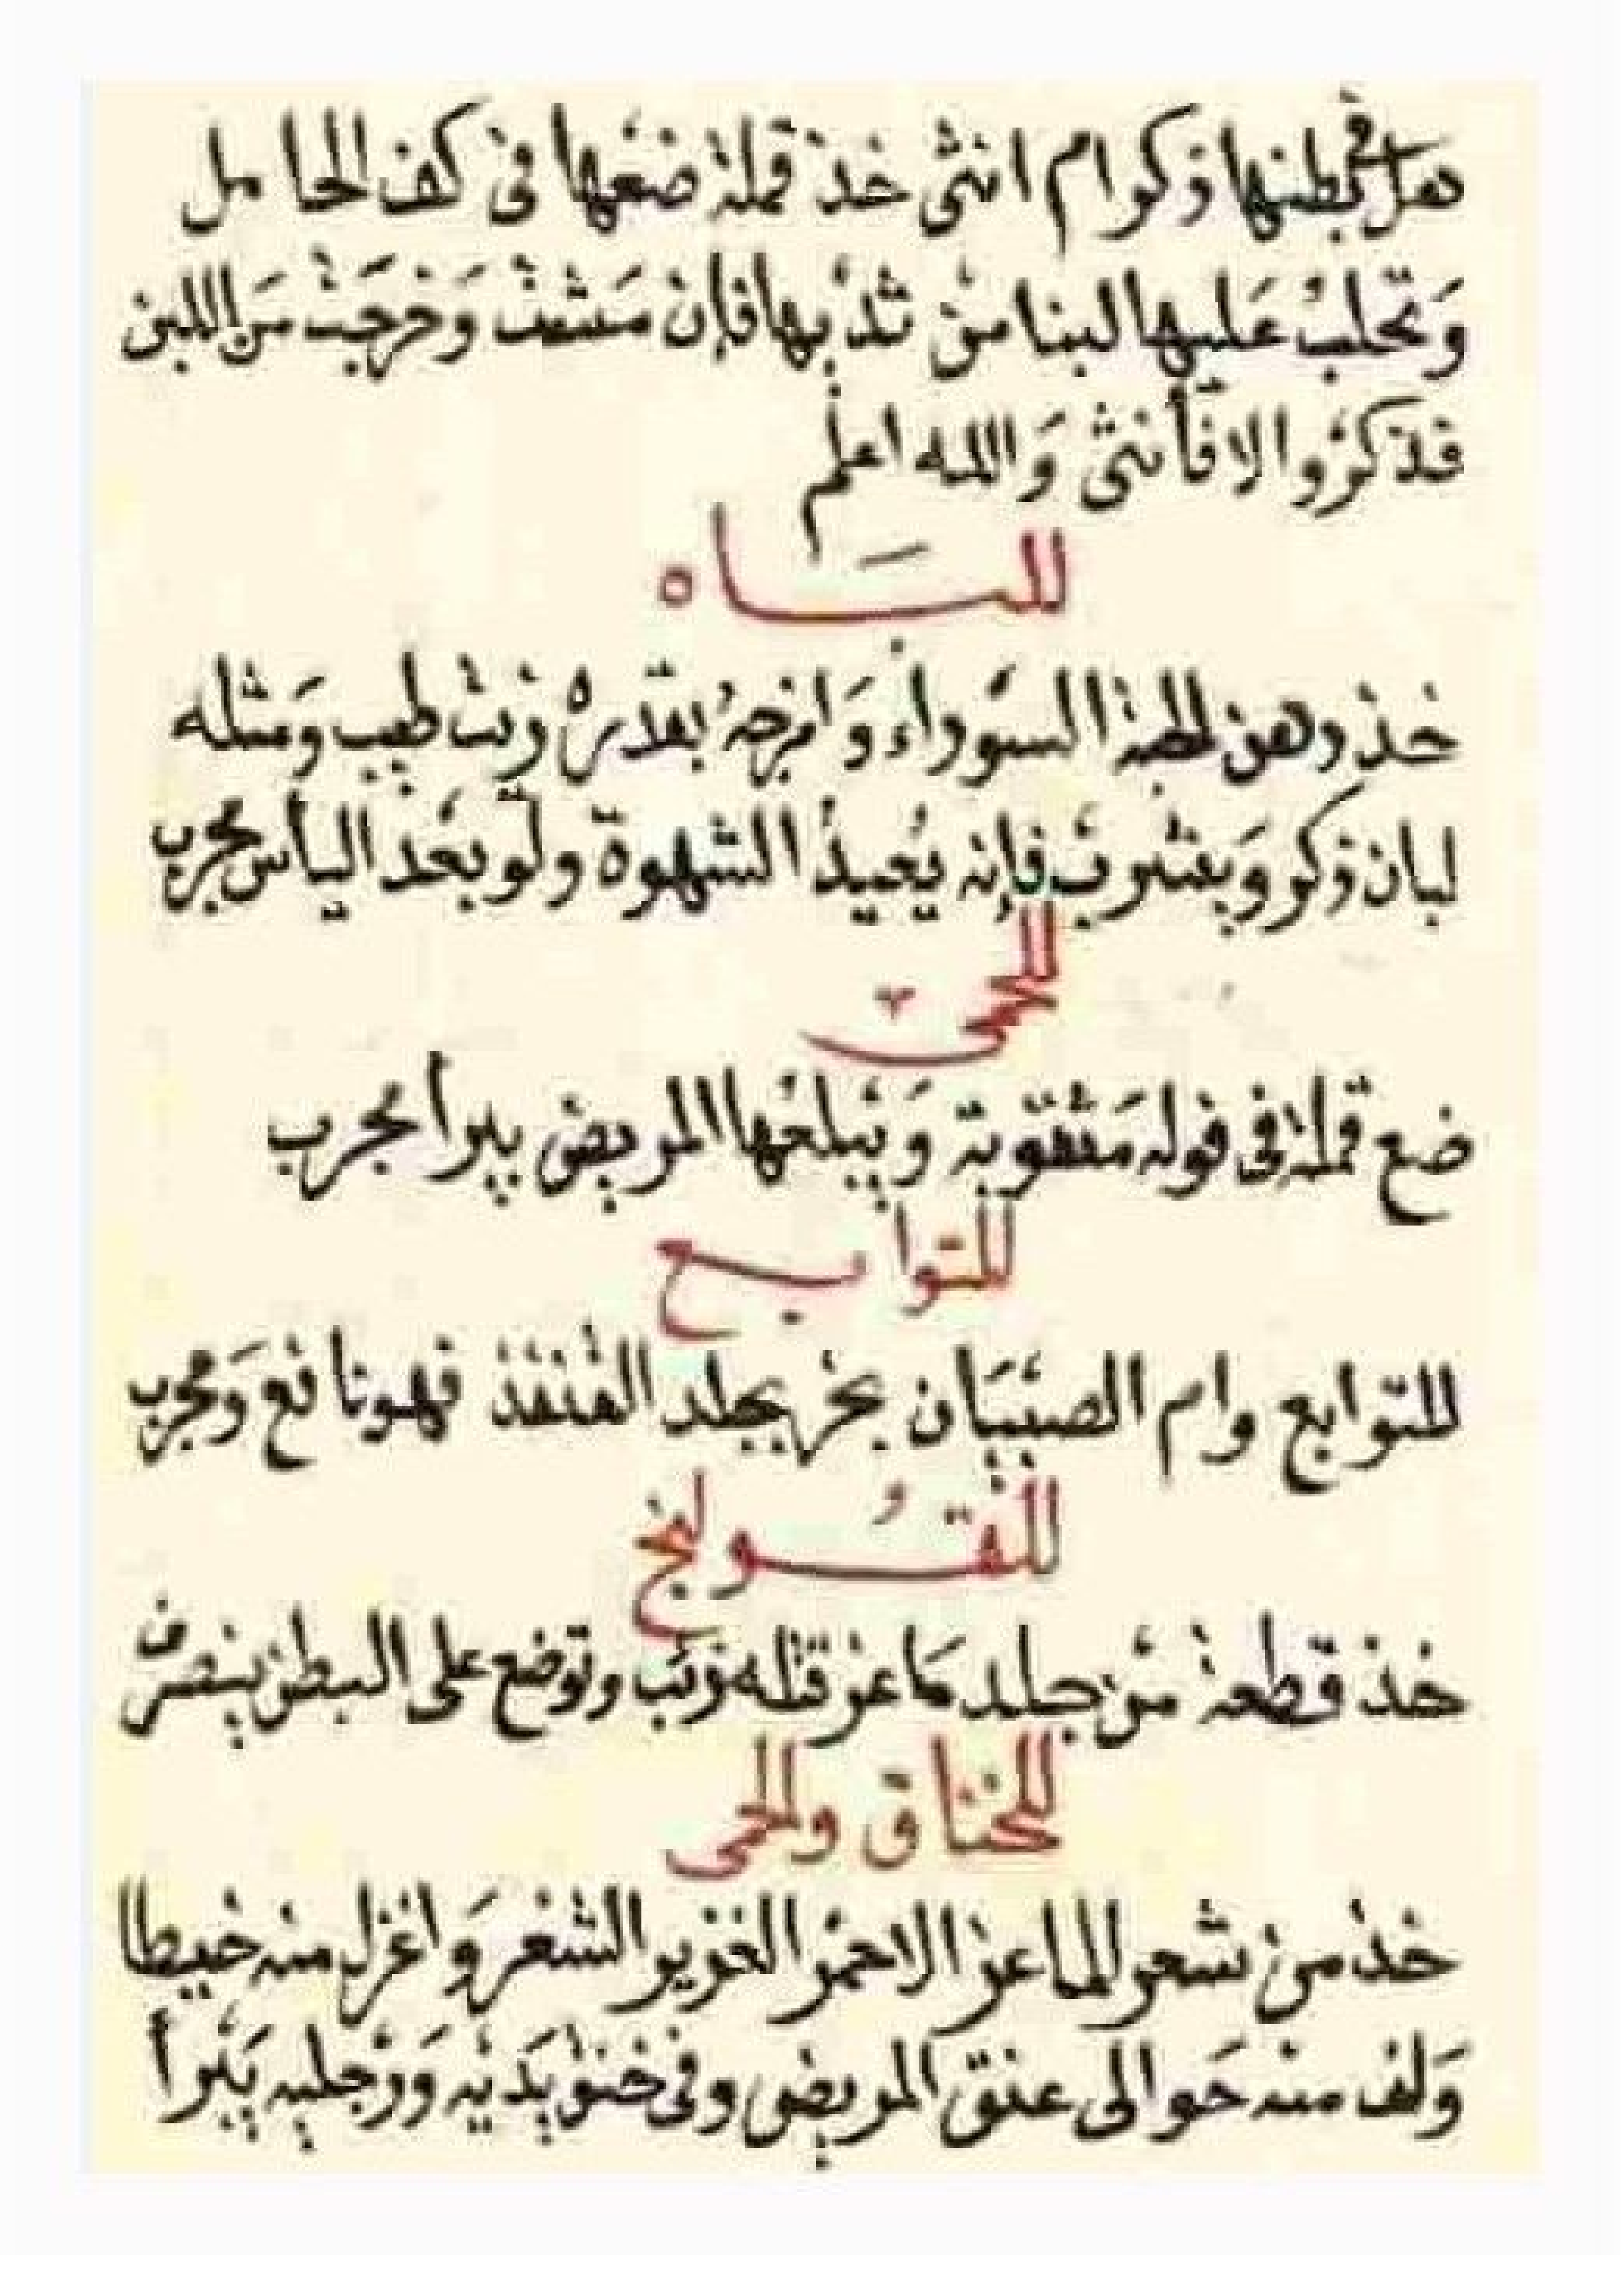 هل فى بطنها ذكر او ام انثى خذ قملة ضعها فى كف الحامل
وَتحلبُ عَليها لبنا من ثديها فإن مَشت وَخرجَت مَن اللبن
فذكرٌ والا فأنثى وَالله اعلم
للبَـــاه
خذ دهن الحبة السَوداء وَامزجهُ بقدره زيت طيب وَمثله
لبان ذكر وَيشرب فإنه يُعيدُ الشهوة ولو بعد اليأس مجرب
للحمى
ضع قملة فى فوله مَثقوبة وَيبلعُها المريض يبرأ مجرب
للتوابــع
للتوابع وام الصبيَان بخر بجلد القُنفذ فهو نافع وَمجرب
للقُـــولنج
خذ قطعة من جلد مَاعز قتله ذئب وتوضع على البطن ينصرف
للخناق والحمى
خذ من شعر الماعز الاحمر الغزير الشعر وَاغزل منه خيطا
وَلف منه حَوالى عنق المريض وفى خنصر يَديه وَرجليه يَبرأ